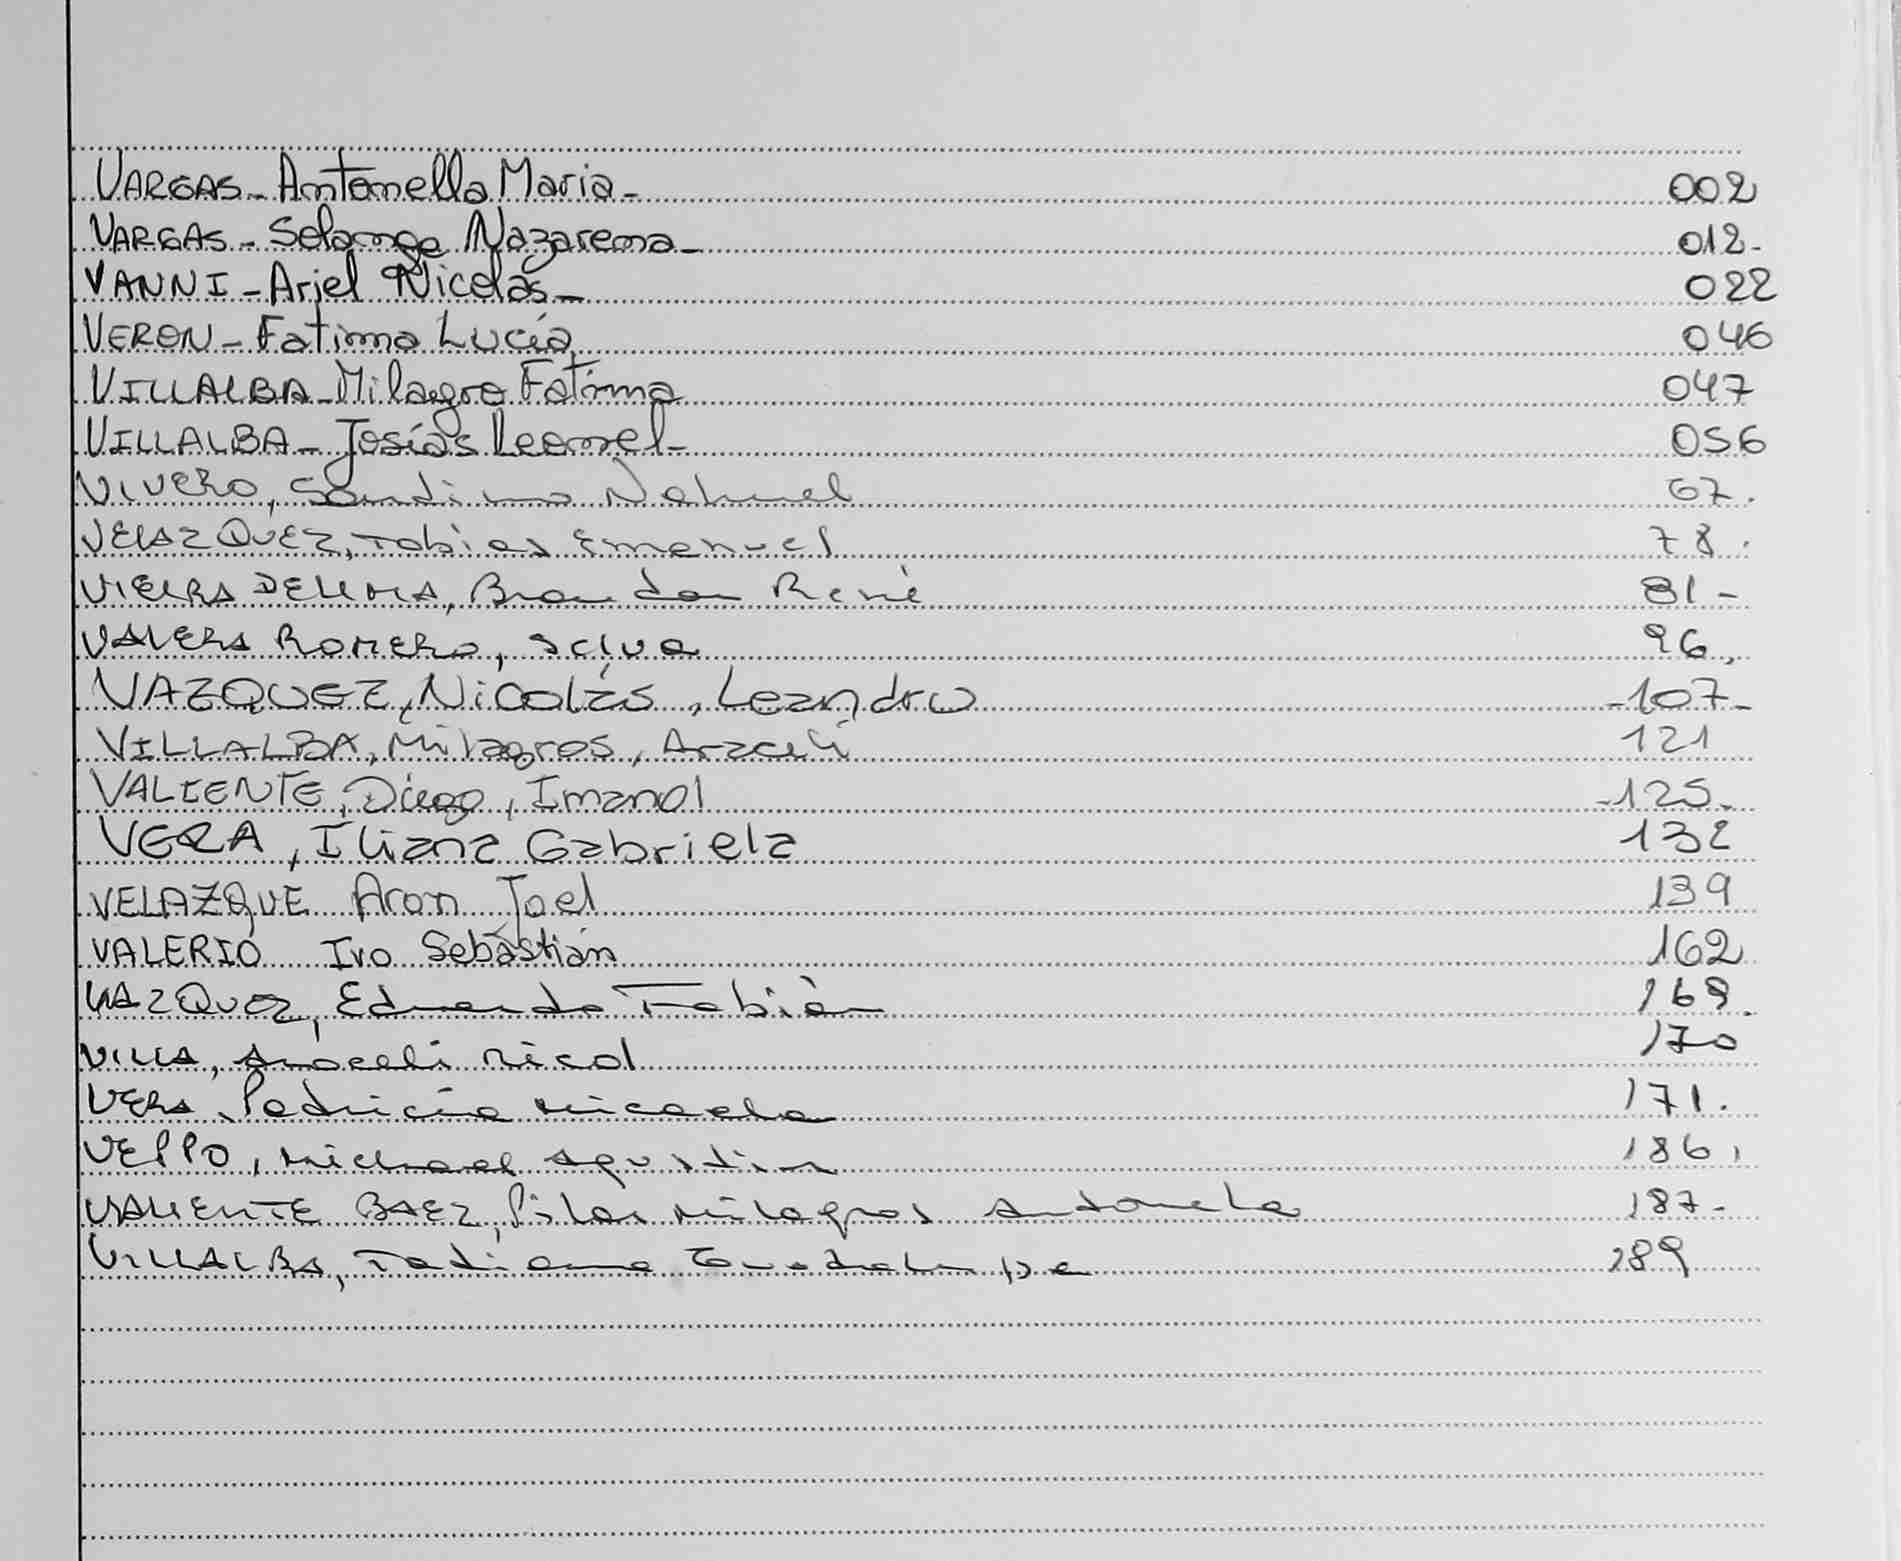 VARGAS - Antonella Maria - 002
VARGAS - Solange Nazarena - 012 -
VANNI - Ariel Nicolás - 022
VERON - Fatima Lucía 046
VILLALBA - Milagro Fatima 047
VILLALBA - Josías Leonel - 056
VIVERO, Santino Nahuel 67.
VELAZQUEZ, Tobias Emanuel 78.
VIEIRA DELIMA, Brandon René 81 -
VALERA ROMERO, 96.
VAZQUEZ, Nicolás, Leandro - 107 -
VILLALBA, Milagros, Araceli 121
VALIENTE, Diego, Imanol - 125 -
VERA, Iliana Gabriela 132
VELAZQUE Aron Joel 139
VALERIO Ivo Sebastián 162
VAZQUEZ, Eduardo Fabián 169.
VILLA, Araceli Nicol 170
VERA, Patricia Micaela 171.
VEPPO, Michael Agustin 186.
VALIENTE BAEZ, Pilar Milagros Antonela 187 -
VILLALBA, Tatiana 189